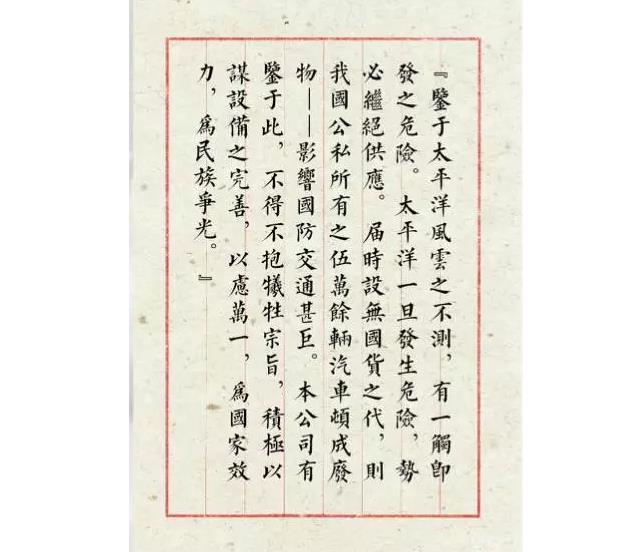 『鑒于太平洋風雲之不測，有一觸卽
發之危險。太平洋一旦發生危險，勢
必繼絕供應。屆時設無國貨之代，則
我國公私所有之伍萬餘輛汽車頓成廢
物——影響國防交通甚巨。本公司有
鑒于此，不得不抱犧牲宗旨，積極以
謀設備之完善，以慮萬一，爲國家效
力，爲民族爭光。』